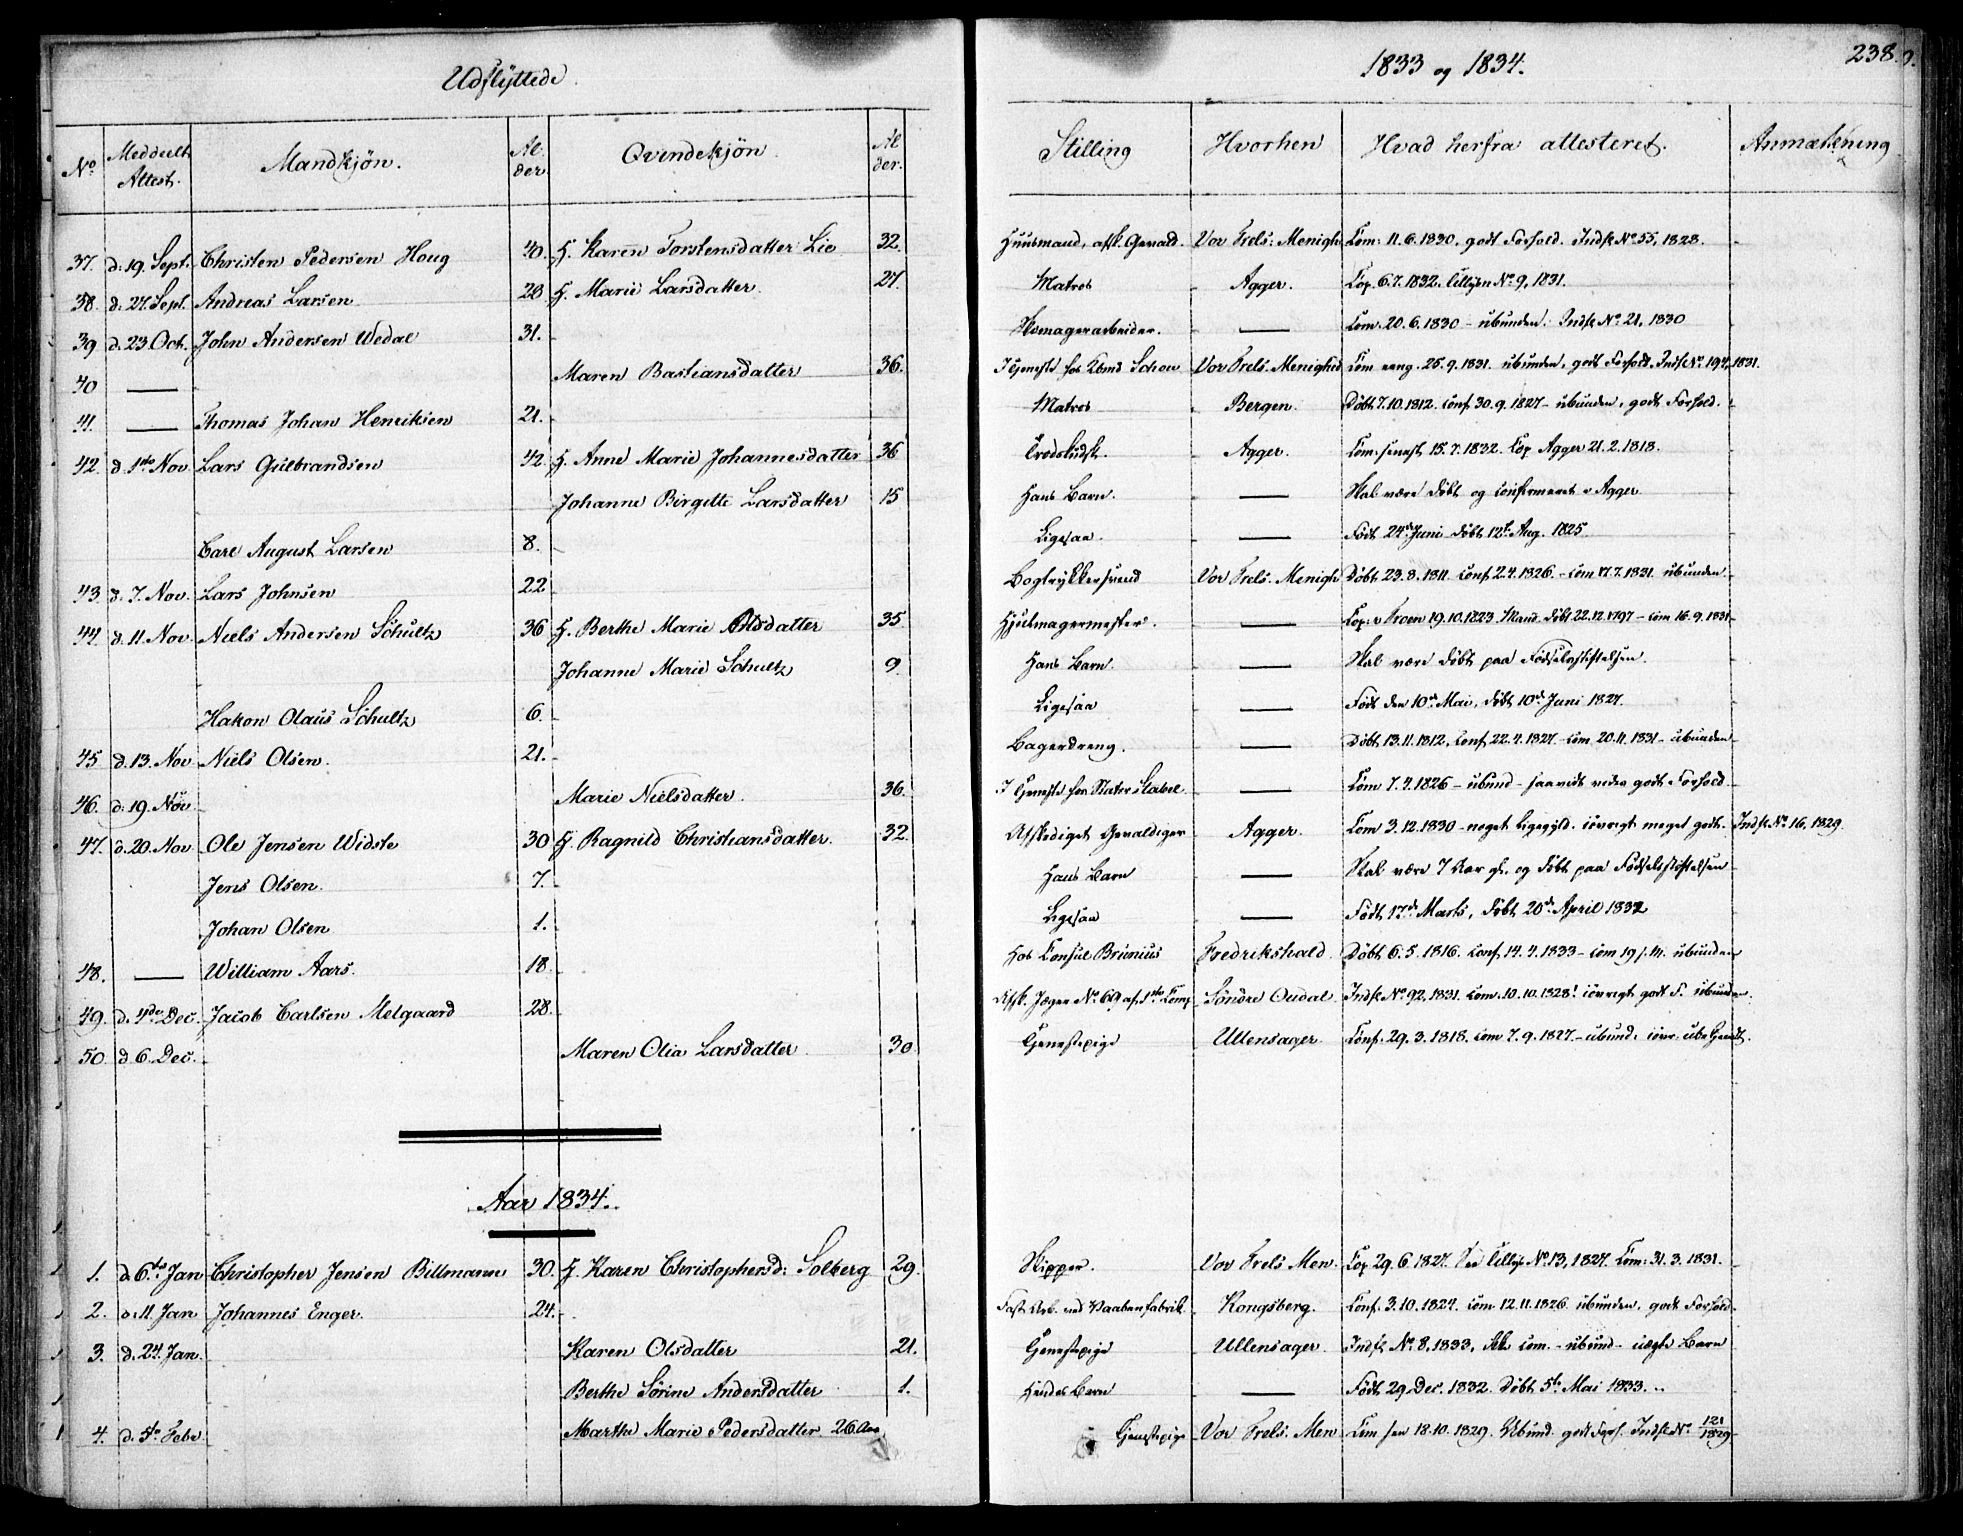 Udflyttede.
1833 og 1834.
238.
No. | Meddeelt Attest. | Mandkjøn. | Alder | Qvindekjøn. | Alder. | Stilling | Hvorhen | Hvad herfra attesteret. | Anmærkning
37. | d. 19. Sept. | Christen Pedersen Houg | 40. | H. Karen Torstensdatter Lie | 32. | Huusmand, afsk. Gevald. | Vor Frels. Menigh. | Com: 11.6.1830, godt Forhold. Indfl. No. 55, 1828.
38. | d. 27. Sept. | Andreas Larsen | 28 | H. Marie Larsdatter. | 27. | Matros | Agger. | Cop. 6.7.1832. No. 9, 1831.
39 | d. 23. Oct. | John Andersen Wedal | 31. | Skomagerarbeider. | — | Com. 20.6.1830 – ubunden. Indfl. No. 21, 1830
40 | — | Maren Bastiansdatter | 36. | I Tjeneste hos Schou | Vor Frels. Menighed | Com. 25.9.1831. ubunden, godt Forhold. Indfl. No. 194, 1831.
41. | — | Thomas Johan Henriksen | 21. | Matros | Bergen. | Døbt 7.10.1812. Conf. 30.9.1827 – ubunden, godt Forhold.
42 | d. 1ste Nov | Lars Gulbrandsen | 42 | H. Anne Marie Johannesdatter | 36 | Agger. | Com. senest 15.7.1832. Cop. Agger 21.2.1818.
Johanne Birgitte Larsdatter | 15 | Hans Barn. | — | Skal være døbt og confirmeret i Agger
Carl August Larsen | 8. | Ligesaa. | — | Født 24de Juni døbt 12te Aug. 1825
43. | d. 7. Nov. | Lars Johnsen | 22 | Bogtrykkersvend | Vor Frels. Menigh | Døbt 23.8.1811. Conf. 2.4.1826. – Com. 17.7.1831. ubunden
44. | d. 11. Nov | Niels Andersen Schultz | 36 | H. Berthe Marie Olsdatter | 35. | Hjulmagermester. | — | Cop. i Kroen 19.10.1823. Mand. døbt 22.12.1797 – Com 16.9.1831
Johanne Marie Schultz | 9. | Hans Barn. | — | Skal være døbt paa Fødselsstiftelsen.
Hakon Olaus Schultz | 6. | Ligesaa | — | Født den 10de Mai, døbt 10de Juni 1827.
45 | d. 13. Nov | Niels Olsen. | 21. | Bagerdreng. | — | Døbt 13.11.1812, Conf. 22.4.1827 – Com 20.11.1831 – ubunden
46. | d. 19. Nov | Marie Nielsdatter. | 36. | I Tjeneste hos | — | Com 7.4.1826 – ubund – saavidt vides godt Forhold
47. | d. 20. Nov | Ole Jensen Widste | 30 | H. Ragnild Christiansdatter. | 32. | Afskediget Gevaldiger | Agger. | Com 3.12.1830 – noget ligegyld. iøvrigt meget godt. | Indfl. No. 16, 1829.
Jens Olsen. | 7. | Hans Barn | — | Skal være 7 Aar gl. og døbt paa Fødselsstiftelsen
Johan Olsen | 1. | Ligesaa | — | Født 17de Marts, døbt 20de April 1832
48. | — | William Aars. | 18 | Hos Consul Brunius | Fredrikshald. | Døbt 6.5.1816. Conf. 14.4.1833 – Com ubunden
49. | d. 4de Dec. | Jacob Carlsen Melgaard | 28. | Afsk. Jæger No. 69 af 1ste Comp | Søndre Oudal. | Indfl. No. 92, 1831. Com. 10.10.1828! iøvrigt godt F. ubunden.
50 | d 6. Dec. | Maren Olia Larsdatter | 30. | Tjenestepige | Ullensager | Conf. 29.3.1818. Com 7.9.1827 – ubund.
Aar 1834.
1. | d. 6te Jan | Christopher Jensen Billmann | 30. | H. Karen Christophersd: Solberg | 29. | Skipper. | Vor Frels. Men. | Cop. 29.6.1827. No. 13, 1827. Com: 31.3.1831.
2. | d. 11. Jan | Johannes Enger. | 24. | Fast Arb. ved Vaabenfabrik. | Kongsberg. | Conf. 3.10.1824. Com 12.11.1826. ubunden, godt Forhold
3. | d. 24. Jan. | Karen Olsdatter | 21. | Tjenestepige | Ullensager | Indfl. No. 8, 1833, ikke Com. – ubund – uægte Barn
Berthe Sørine Andersdatter | 1. | Hendes Barn | — | Født 29 Dec. 1832. Døbt 5te Mai 1833.
4. | d. 5te Febr. | Marthe Marie Pedersdatter | 26 Aar | Tjenestepige | Vor Frels. Men | Com sen 18.10.1829. Ubund. godt Forh. Indfl. No. 121/1829